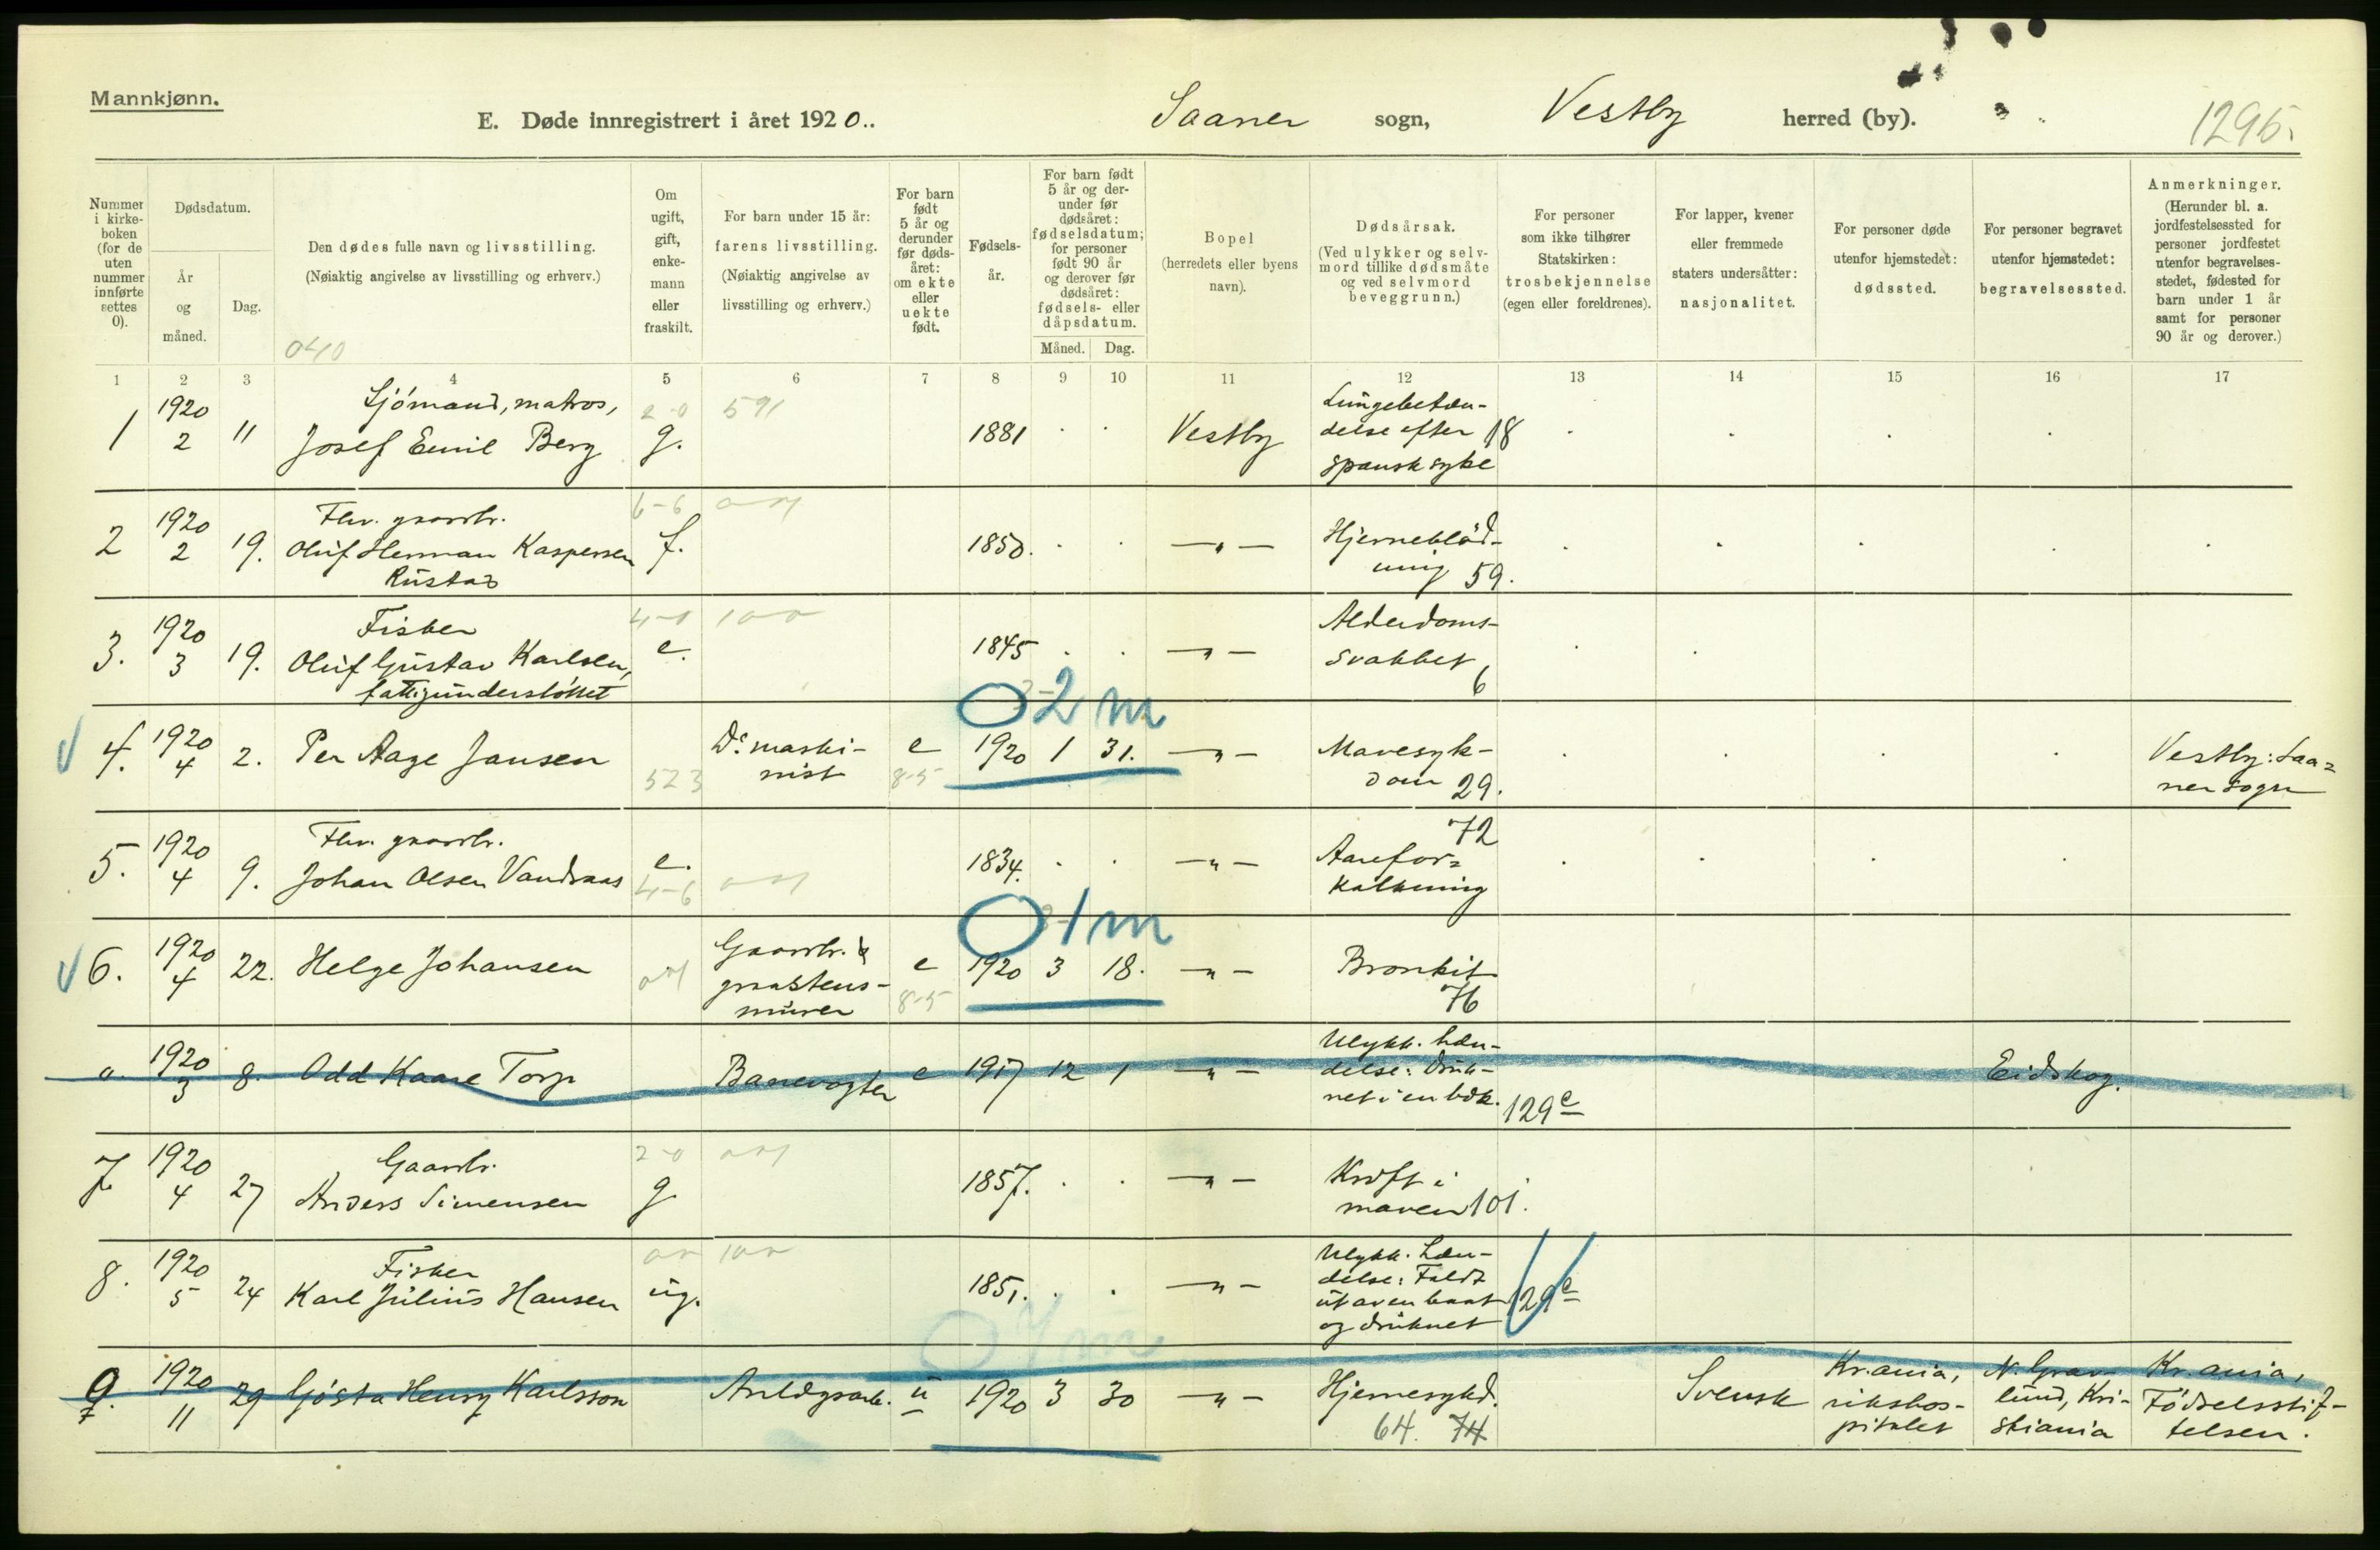 Mannkjønn.
E. Døde innregistrert i året 1920..
Saaner sogn, Vestby herred (by).
1295.
Nummer i kirke-boken (for de uten nummer innførte settes 0).
Dødsdatum.
År og måned.
Dag.
Den dødes fulle navn og livsstilling.
(Nøiaktig angivelse av livsstilling og erhverv.)
040
Om ugift, gift, enke-mann eller fraskilt.
For barn under 15 år:
farens livsstilling.
(Nøiaktig angivelse av livsstilling og erhverv.)
For barn født 5 år og derunder før døds-året: om ekte eller uekte født.
Fødsels-år.
For barn født 5 år og der-under før dødsåret: fødselsdatum; for personer født 90 år og derover før dødsåret: fødsels- eller dåpsdatum.
Måned. Dag.
Bopel
(herredets eller byens navn).
Dødsårsak.
(Ved ulykker og selv-mord tillike dødsmåte og ved selvmord beveggrunn.)
For personer som ikke tilhører Statskirken: trosbekjennelse (egen eller foreldrenes).
For lapper, kvener eller fremmede staters undersåtter: nasjonalitet.
For personer døde utenfor hjemstedet: dødssted.
For personer begravet utenfor hjemstedet: begravelsessted.
Anmerkninger.
(Herunder bl. a. jordfestelsessted for personer jordfestet utenfor begravelses-stedet, fødested for barn under 1 år samt for personer 90 år og derover.)
1 2 3 4 5 6 7 8 9 10 11 12 13 14 15 16 17
1 1920 2 11 Sjómand, matros, Josef Emil Berg g. 2-0 591 1881 · · Vestby Lungebetæn-delse efter spansk syke 18
2 1920 2 19. Fhv. gaardbr. Oluf Herman Kaspersen Rustad f. 6-6 1850. · · —"— Hjerneblød-ning 59.
3. 1920 3 19. Fisker Oluf Gustav Karlsen, fattigunderstöttet e. 4-0 100 1845 · · —"— Alderdoms-svakhet 6
02m
4. 1920 4 2. Per Aage Jansen 523 D.s maski-nist e 8-5 1920 1 31. —"— Mavesyk-dom 29. Vestby: Saa=ner sogn
5. 1920 4 9. Fhv. gaardbr. Johan Olsen Vandraas e. 4-6 1834. · · —"— 72 Aarefor=kalkning
01m
6. 1920 4 22. Helge Johansen Gaardbr. & graastens-murer e 8-5 1920 3 18. —"— Bronkit 76
0. 1920 3 8. Odd Kaare Torp Banevogter e 1917 12 1 —"— Ulykk. hæn-delse: Druk-net i en bæk. 129e Eidskog.
7. 1920 4 27 Gaardbr. Anders Simensen g. 2-0 1857. · · —"— Kræft i maven 101.
8. 1920 5 24 Fisker Karl Julius Hansen ug. 100 1851. · · —"— Ulykk. hæn-delse: Faldt ut av en baat og druknet 129e
07m
9. 1920 11 29 Gösta Henry Karlsson Anlægsarb. u 1920 3 30 —"— Hjernesykd. 64. 74 Svensk Kr.ania, rikshos-pitalet N. Grav-lund, Kri-stiania Kr.ania, Födselsstif-telsen.